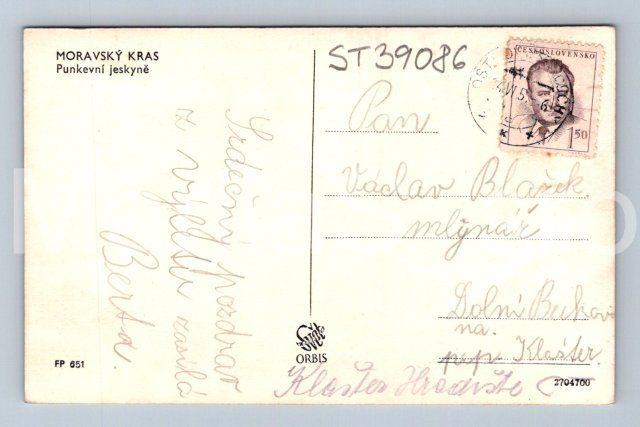 MORAVSKÝ KRAS
Punkevní jeskyně
ST39086
ČESKOSLOVENSKO
1 50
Srdečný pozdrav
z výletu zasílá
Berta.
Pan
Václav Blažek
mlynář
Dolní
na.
pp. Klášter.
Klášter Hradiště
Svět
ORBIS
FP 651
2704700